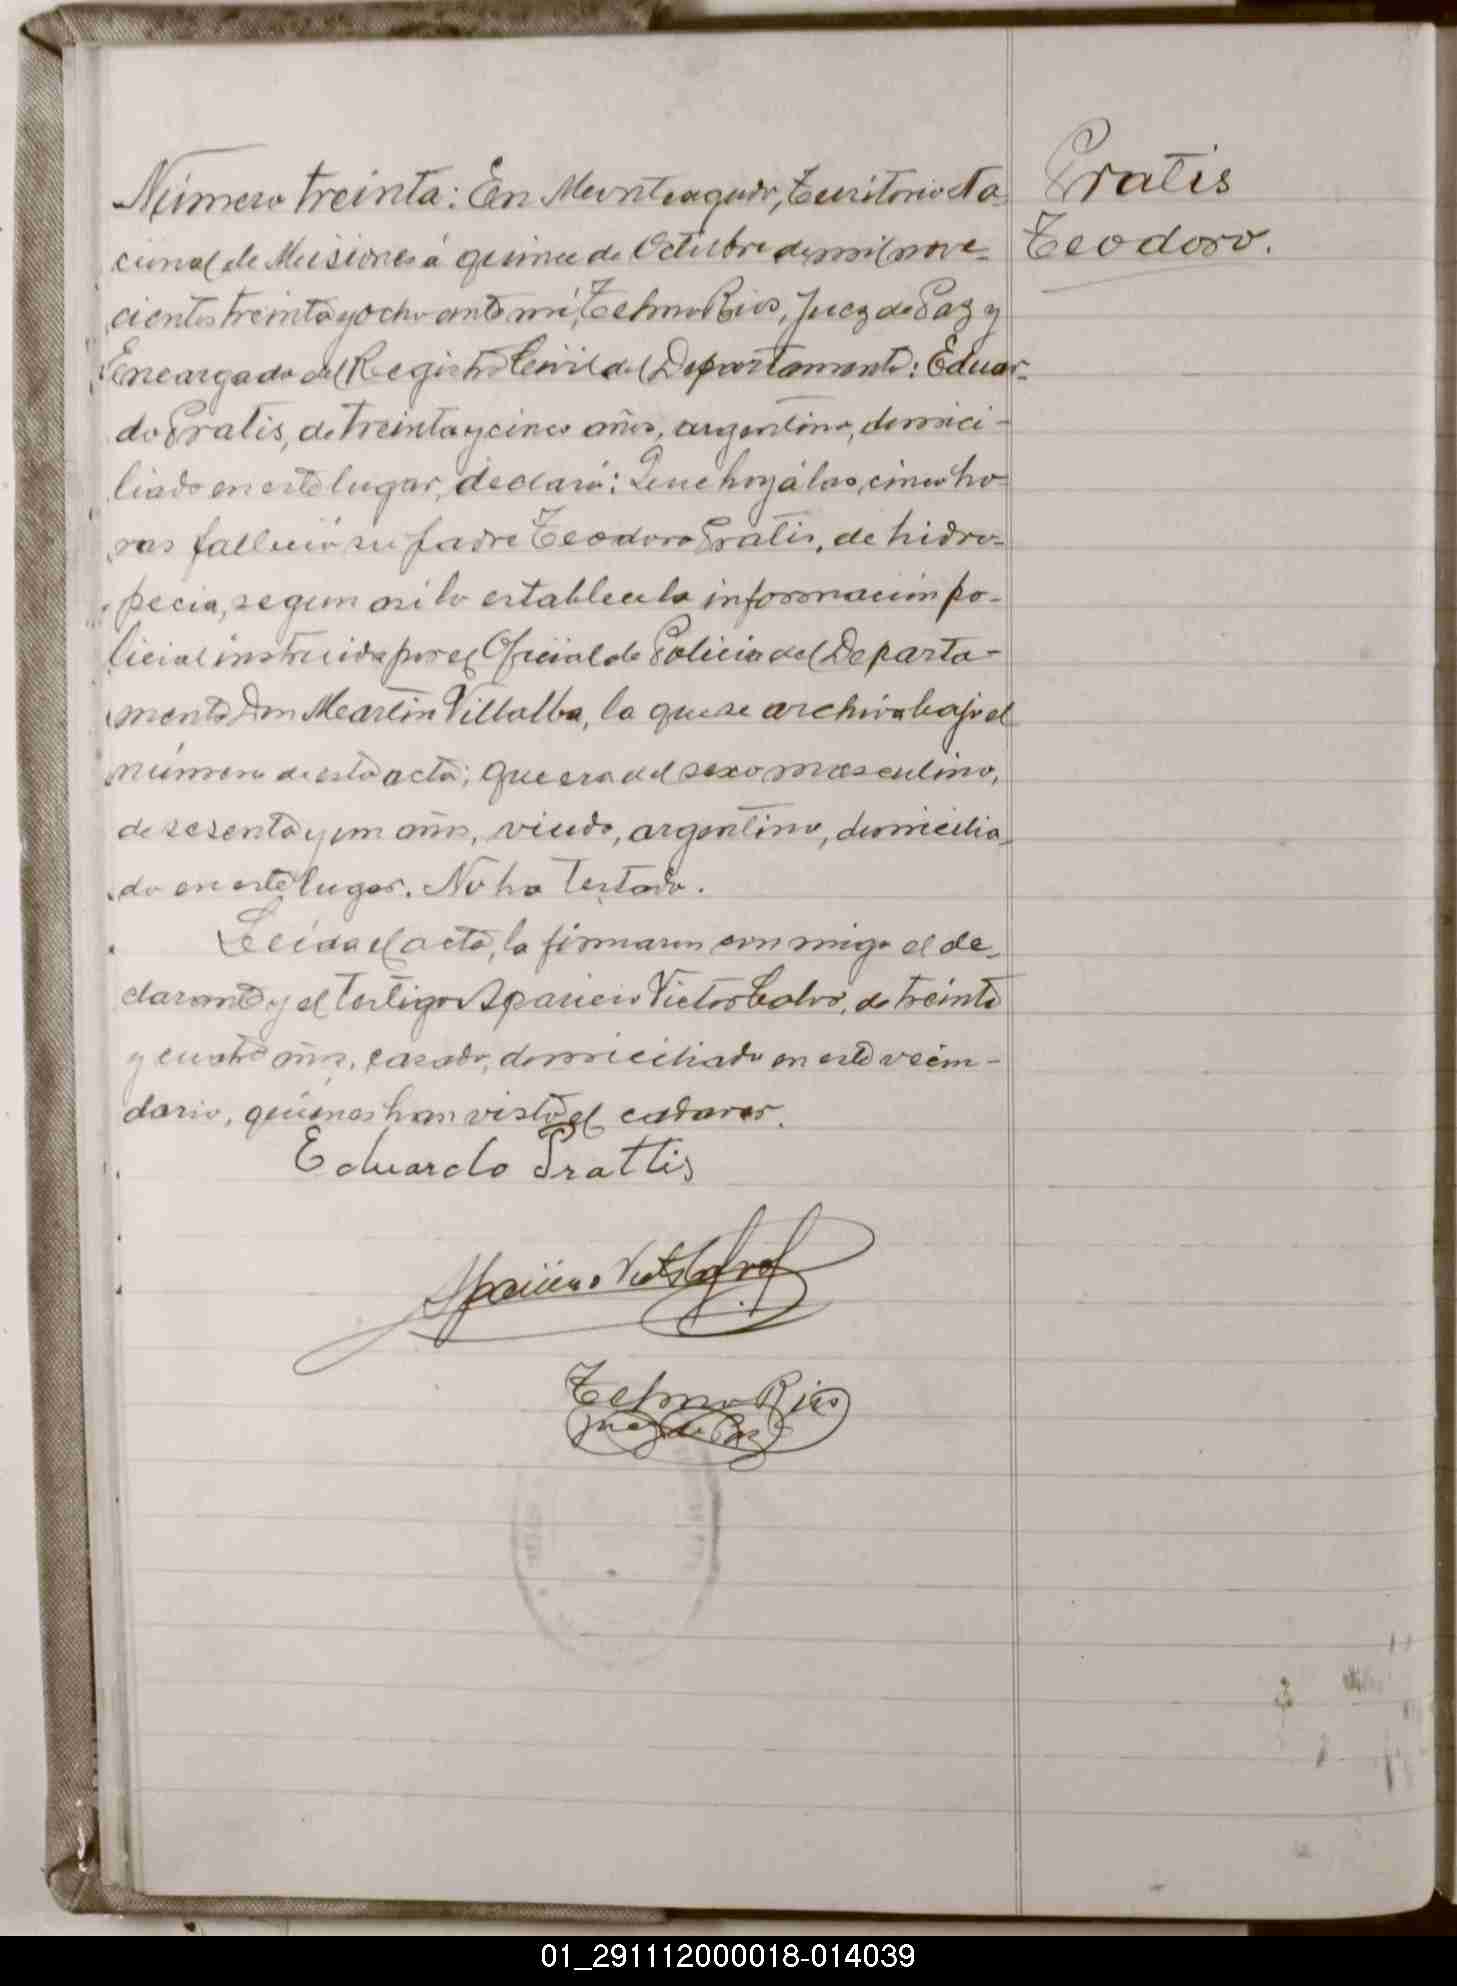 Número treinta: En Monteagudo, Territorio Na-
cional de Misiones á quince de Octubre de mil nove-
cientos treinta y ocho ante mí, Telmo Rios, Juez de Paz y
Encargado del Registro Civil del Departamento: Eduar-
do Pratis, de treinta y cinco años, argentino, domici-
liado en este lugar, declaró: Que hoy á las cinco ho-
ras falleció su padre Teodoro Pratis, de hidro-
pecia, segun asi lo establece la información po-
licial instruida por el Oficial de Policia del Departa-
mento Don Martin Villalba, la que se archiva bajo el
número de esta acta; que era del sexo masculino,
de sesenta y un años, viudo, argentino, domicilia-
do en este lugar. No ha testado.
Leida el acta, la firmaron conmigo el de-
clarante y el testigo Aparicio Victor Calvo, de treinta
y cuatro años, casado, domiciliado en este vecin-
dario, quienes han visto el cadaver.
Eduardo Prattis
Aparicio Victor Calvo
Telmo Rios
Juez de Paz
Pratis
Teodoro.
01_291112000018-014039